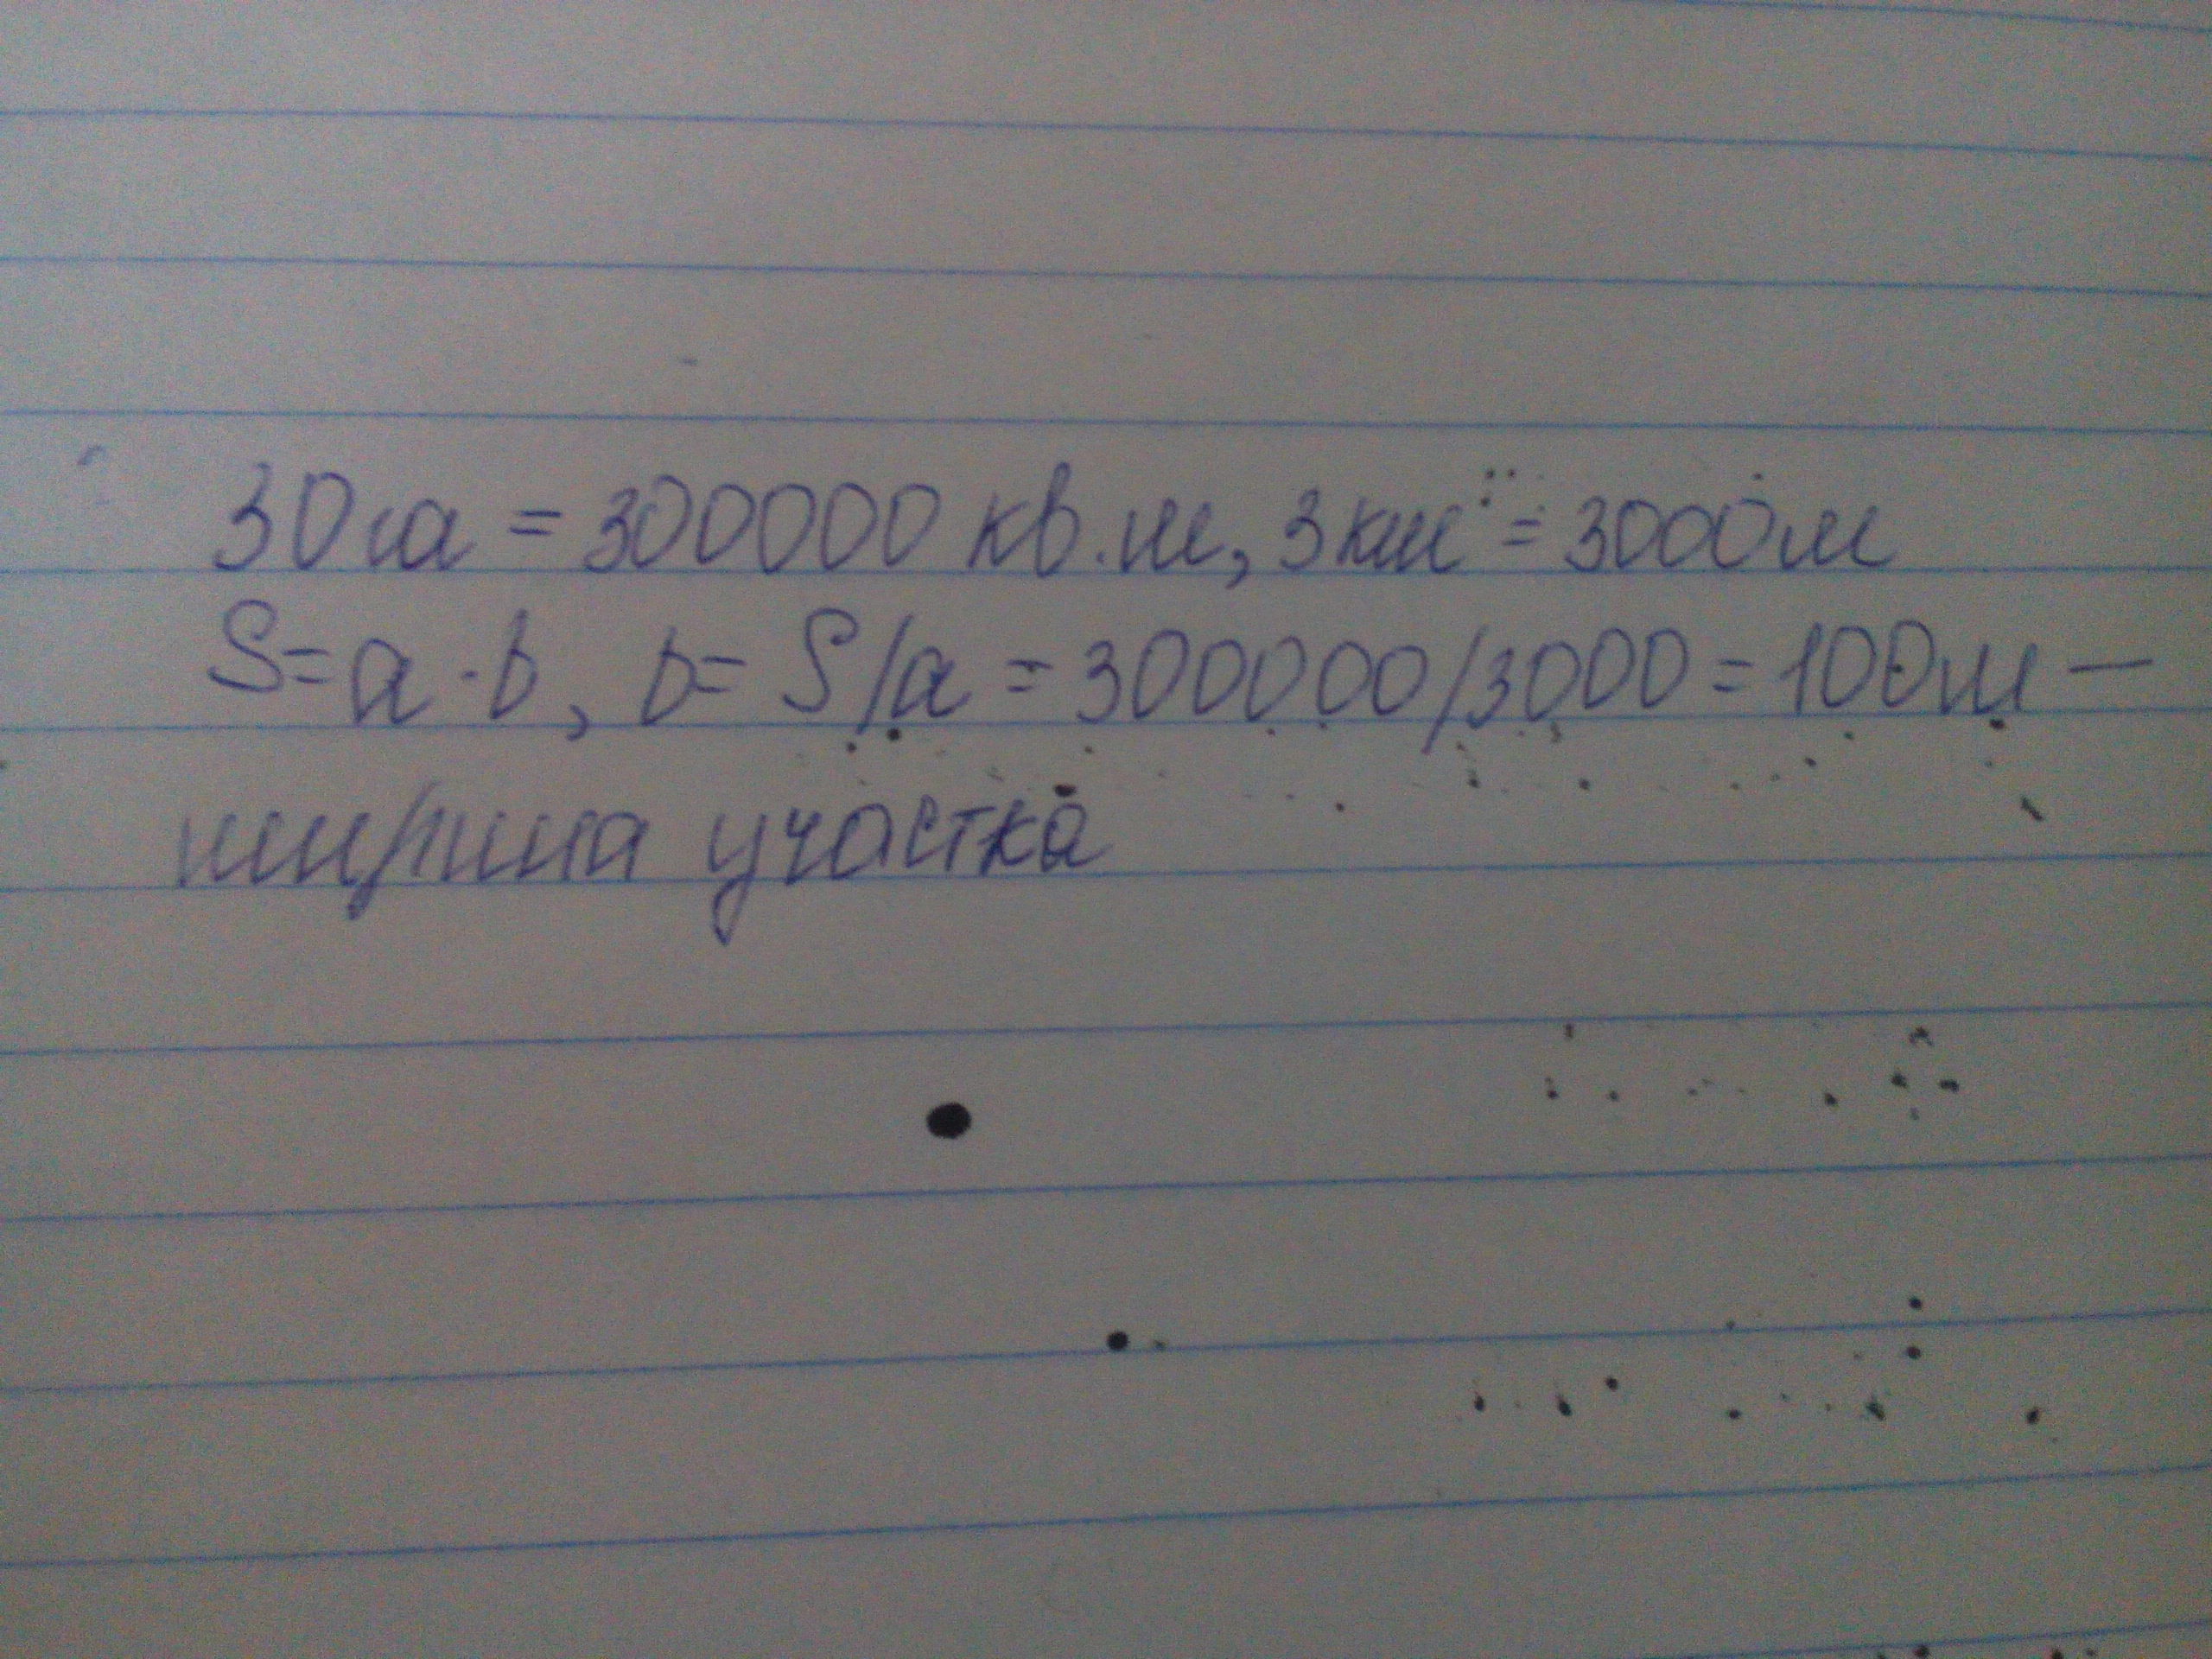 30га = 300000 кв.м, 3км = 3000м
S=a·b, b= S/a = 300000/3000 = 100м —
ширина участка